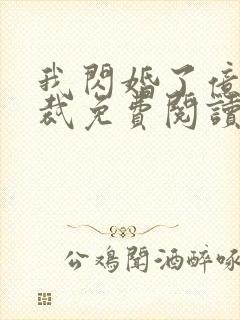 我閃婚了億
裁免費閱讀
公鸡聞酒醉啄